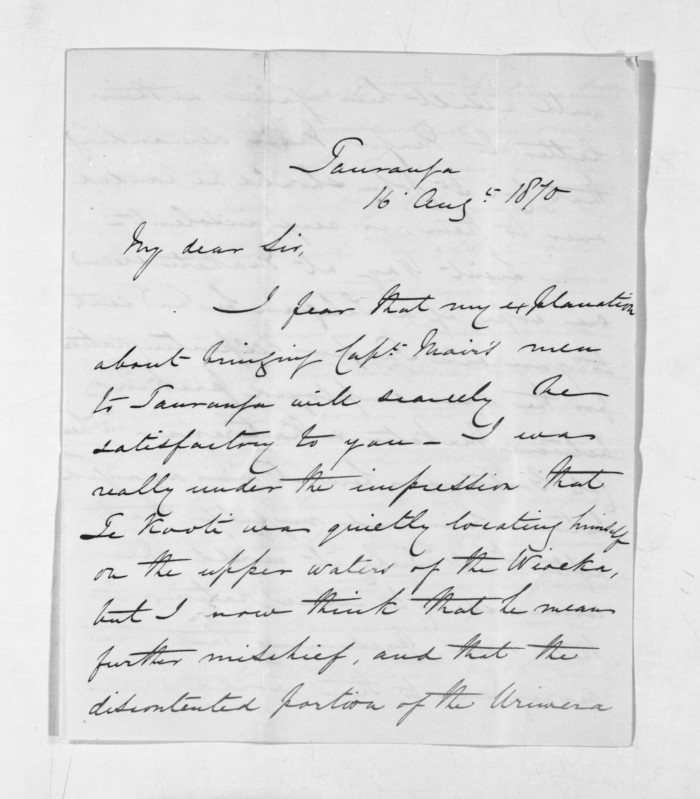 Tauranga
16 Augt 1870
My dear Sir,
I fear that my explanation
about bringing Capt. Mair's men
to Tauranga will scarcely be
satisfactory to you - I was
really under the impression that
Te Kooti was quietly locating himself
on the upper waters of the Wioeka,
but I now think that he means
further mischief, and that the
discontented portion of the Uriwera